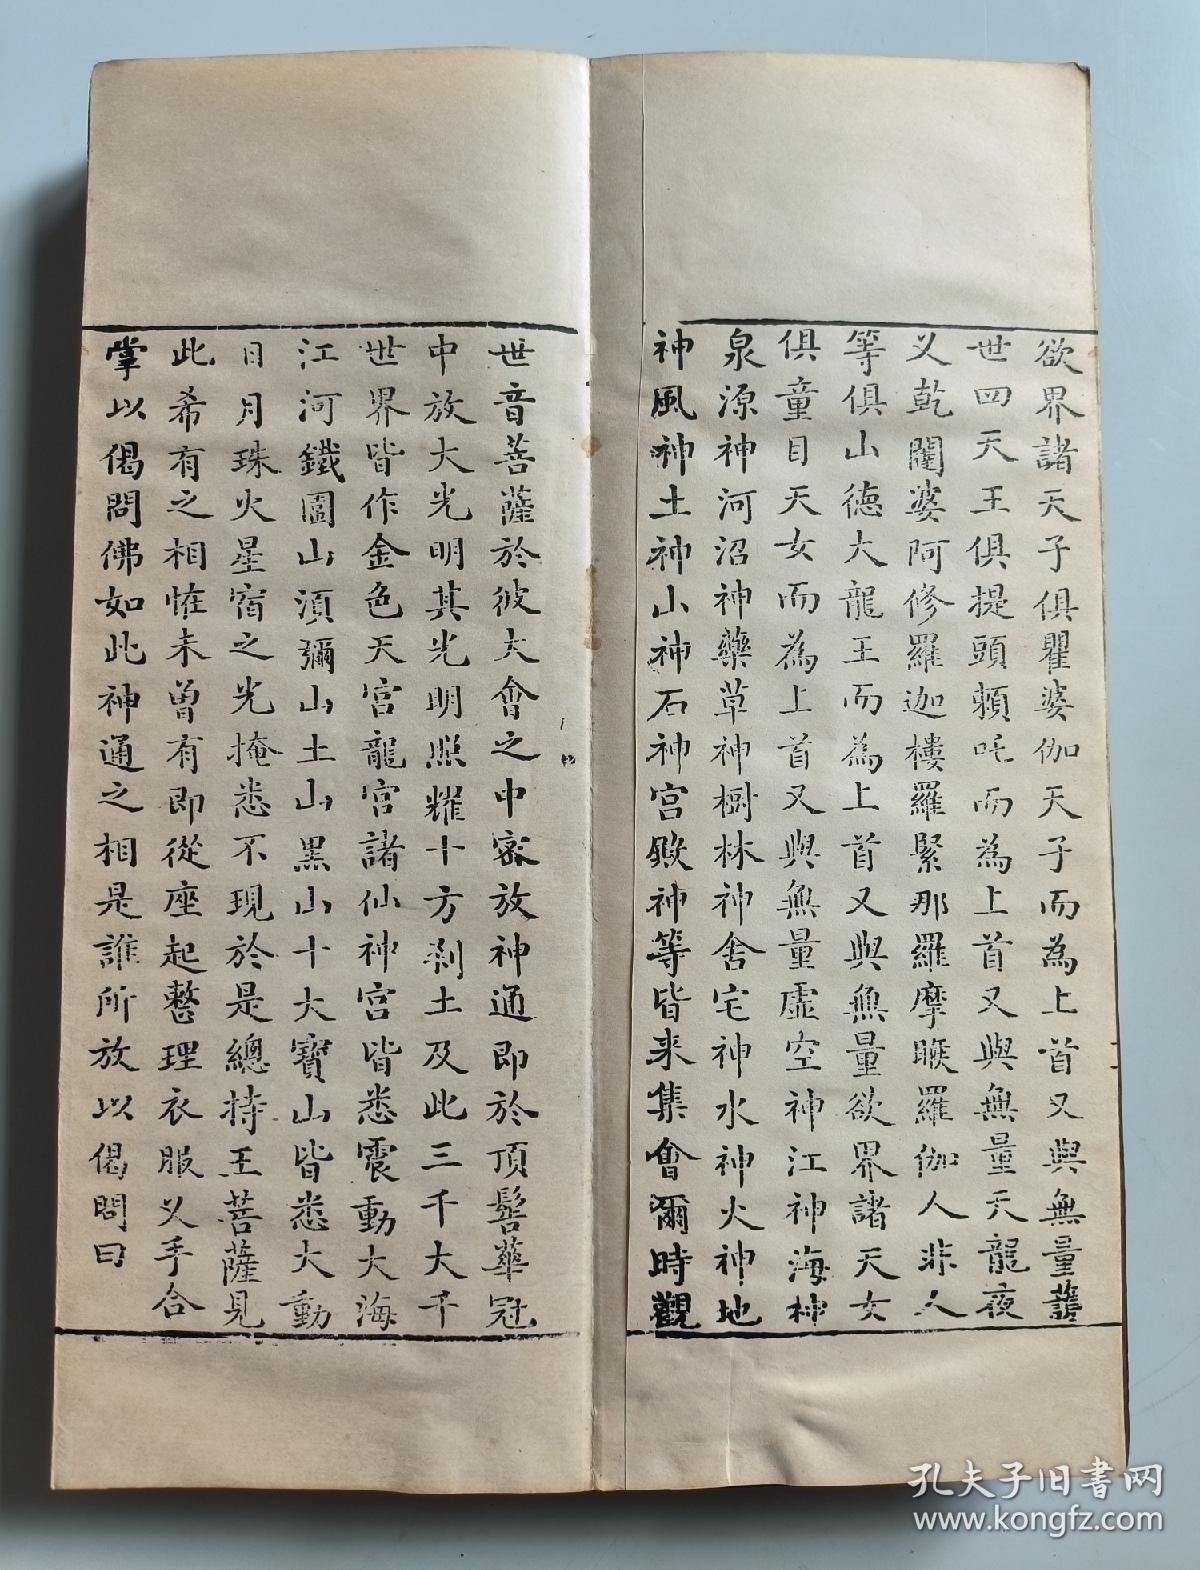 欲界諸天子俱瞿婆伽天子而為上首又與無量護
世四天王俱提頭頼吒而為上首又與無量天龍夜
义乾闥婆阿修羅迦樓羅緊那羅摩睺羅伽人非人
等俱山德大龍王而為上首又與無量欲界諸天女
俱童目天女而為上首又與無量虛空神江神海神
泉源神河沼神藥草神樹林神舍宅神水神火神地
神風神土神山神石神宫殿神等皆来集會爾時觀
世音菩薩於彼大會之中密放神通即於頂髻華冠
中放大光明其光明照耀十方刹土及此三千大千
世界皆作金色天宫龍宫諸仙神宫皆悉震動大海
江河鐵圍山湏彌山土山黑山十大寶山皆悉大動
日月珠火星宿之光掩悉不現於是總持王菩薩見
此希有之相恠未曾有即從座起整理衣服义手合
掌以偈問佛如此神通之相是誰所放以偈問曰
孔夫子旧書网
www.kongfz.com